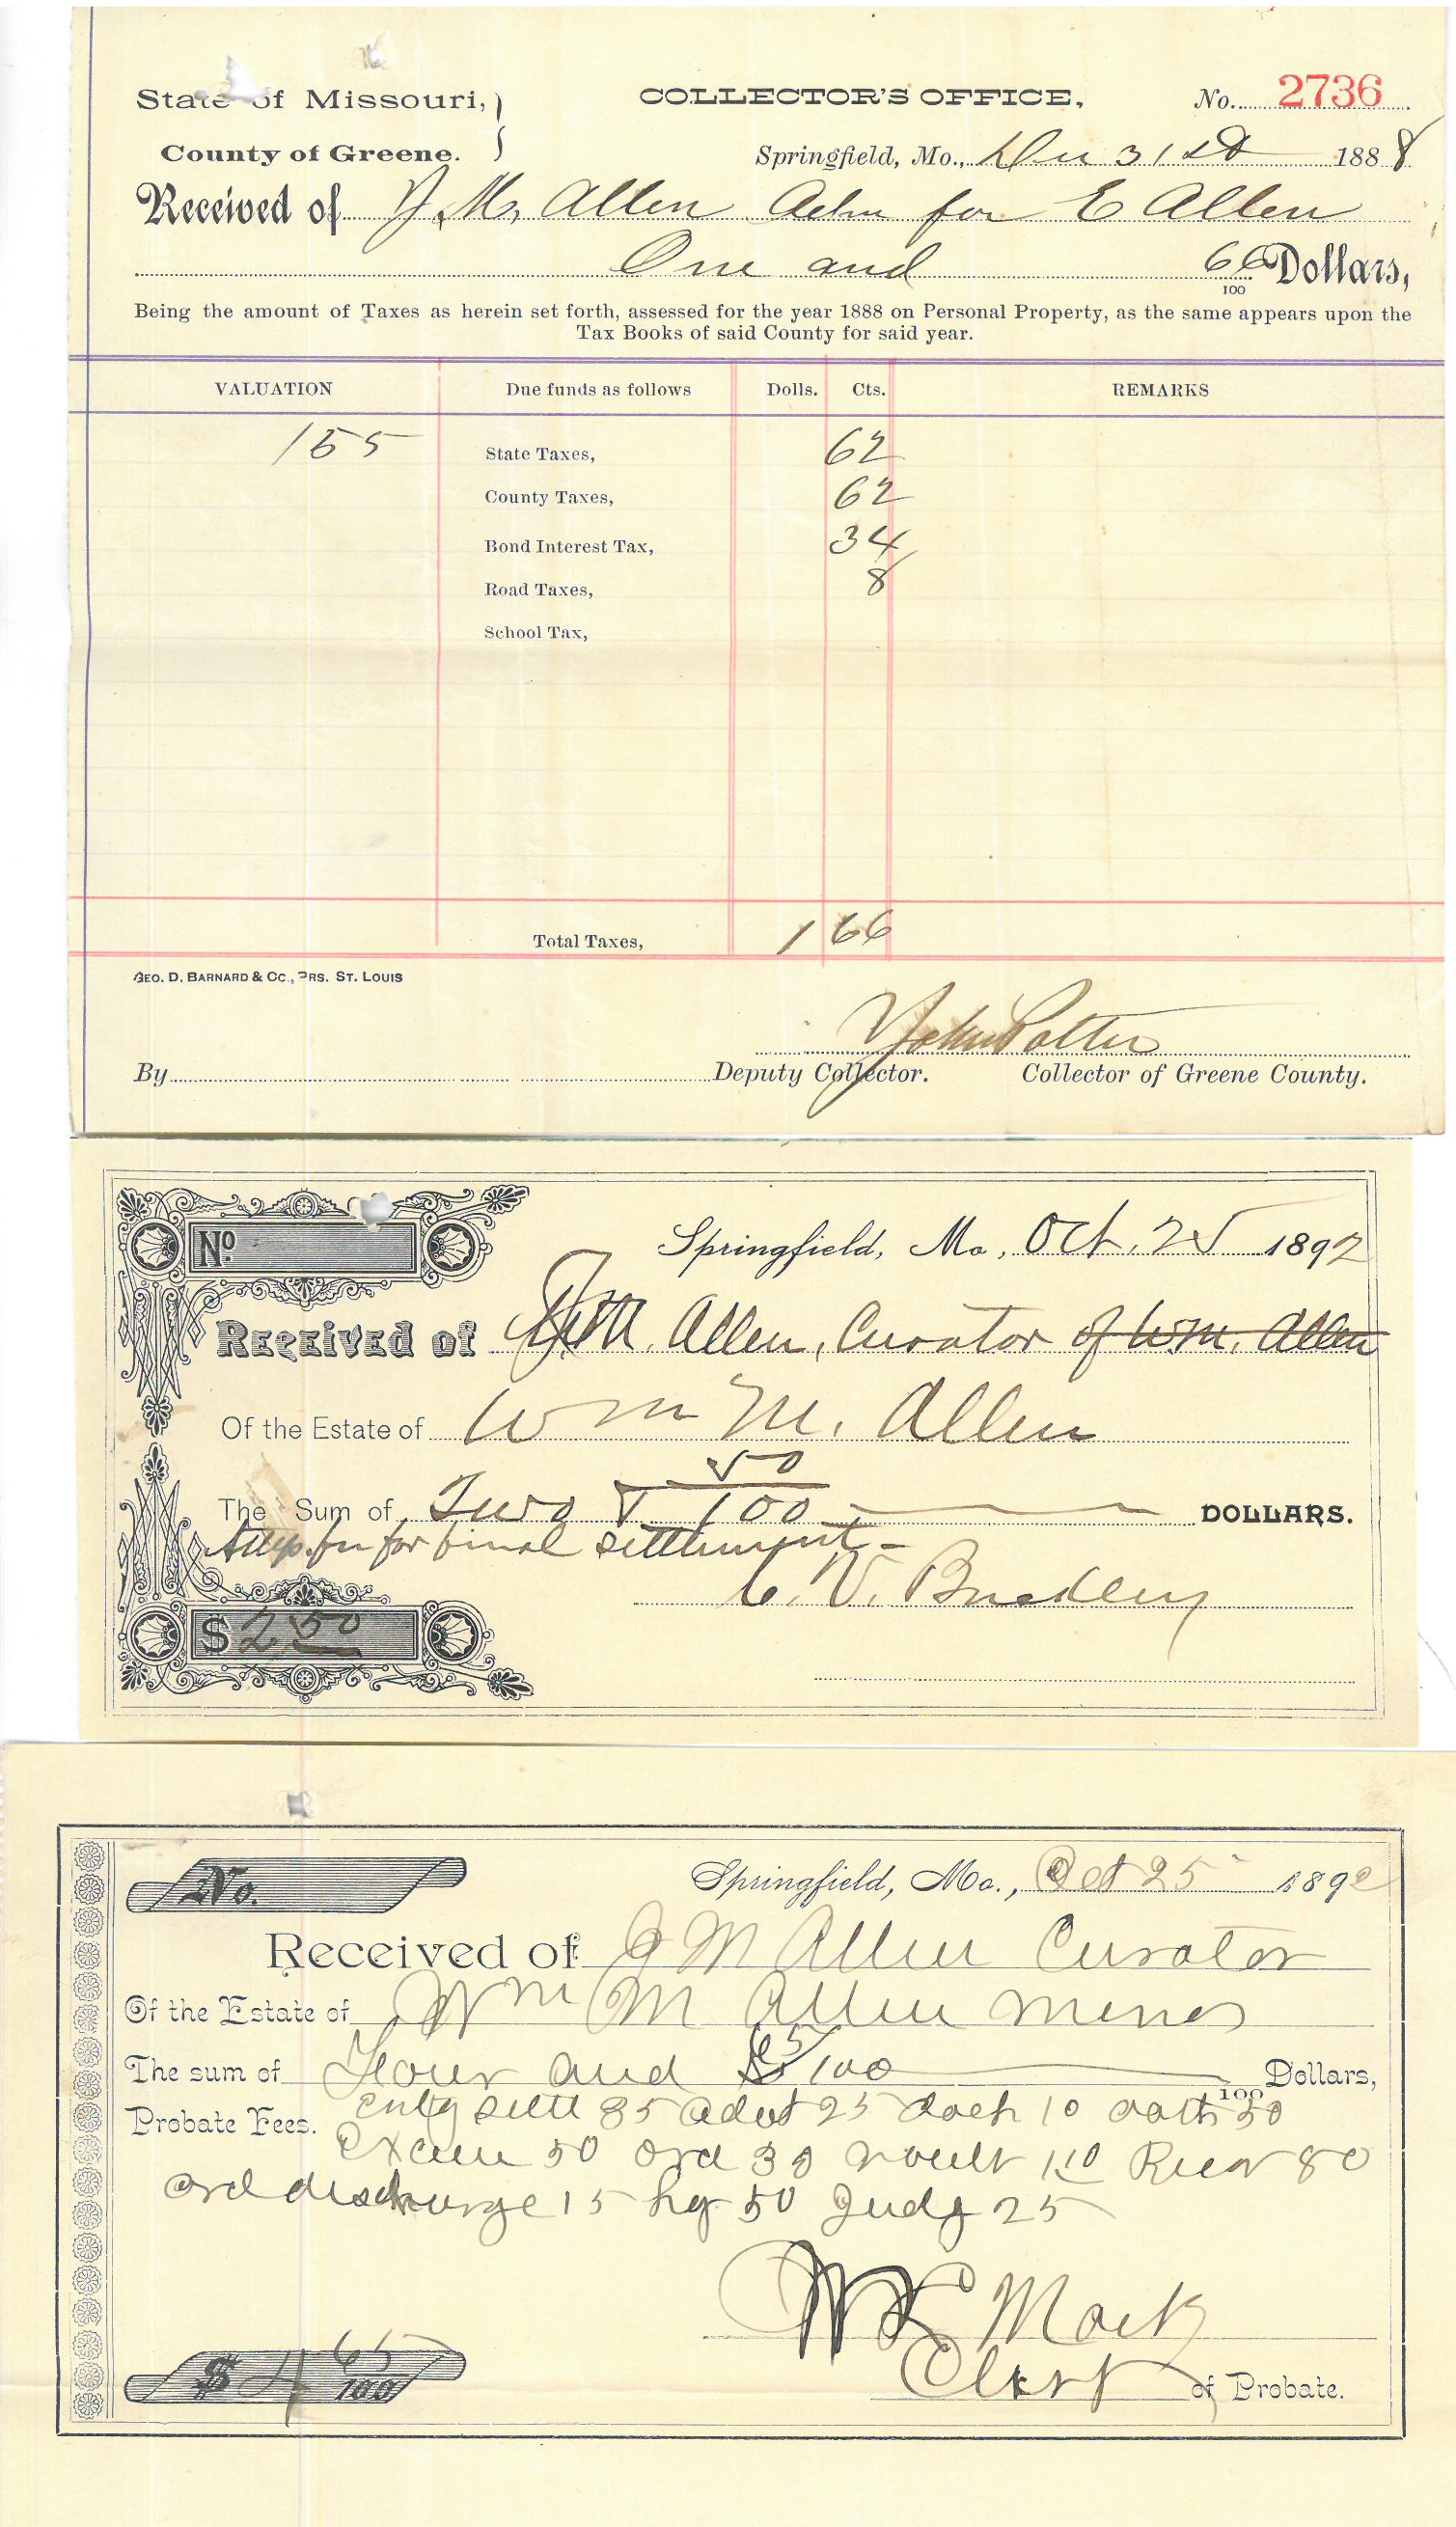 State of Missouri,
County of Greene.
COLLECTOR'S OFFICE,
No. 2736
Springfield, Mo., Dec 31st 1888
Received of J. M. Allen Adm for E Allen
One and 66/100 Dollars,
Being the amount of Taxes as herein set forth, assessed for the year 1888 on Personal Property, as the same appears upon the
Tax Books of said County for said year.
VALUATION Due funds as follows Dolls. Cts. REMARKS
155 State Taxes, 62
County Taxes, 62
Bond Interest Tax, 34
Road Taxes, 8
School Tax,
Total Taxes, 1 66
GEO. D. BARNARD & CO., PRS. ST. LOUIS
John Potter
By Deputy Collector. Collector of Greene County.
No.
Springfield, Mo., Oct. 25 1892
Received of J.M. Allen, Curator of Wm. Allen
Of the Estate of Wm M. Allen
The Sum of Two & 50/100 DOLLARS.
for final settlement -
C. V. Buckley
$ 2.50
No.
Springfield, Mo., Oct 25 1892
Received of J M Allen Curator
Of the Estate of Wm M Allen minor
The sum of Four and 65/100 Dollars,
100
Probate Fees. settl 85 advt 25 10 oath 50
50 ord 30 vouch 1.10 Recor 80
ord discharge 15 50 Judg 25
Mack
Clerk of Probate.
$ 4 65/100